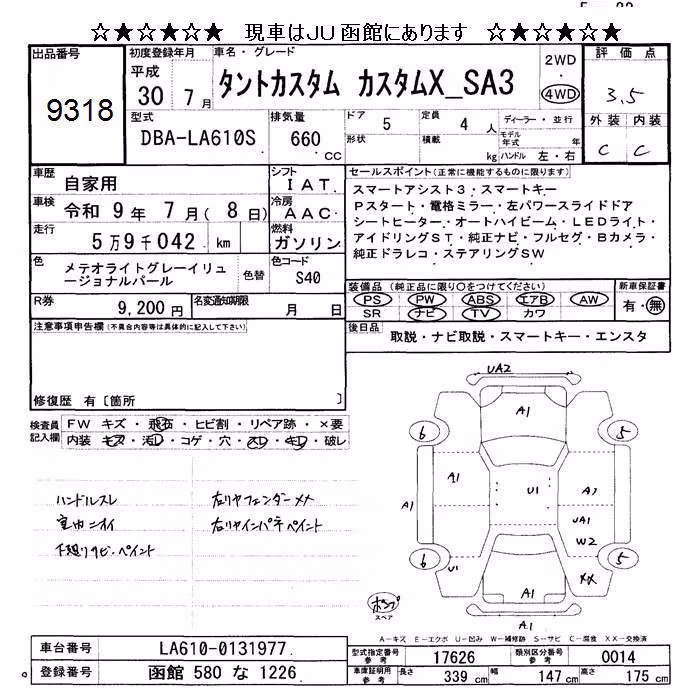 ☆★☆★☆★ 現車はJU函館にあります ☆★☆★☆★
出品番号
9318
初度登録年月
平成
30 7月
車名・グレード
タントカスタム カスタムX_SA3
2WD
・
4WD
評価点
3.5
外装 内装
C C
型式
DBA-LA610S
排気量
660
cc
ドア
5
形状
定員
4人
積載
kg
ディーラー・並行
モデル年式 年
ハンドル 左・右
車歴
自家用
車検
令和 9年 7月( 8日)
走行
5万9千042 km
シフト
IAT
冷房
AAC
燃料
ガソリン
色
メテオライトグレーイリュ
ージョナルパール
色替
色コード
S40
R券
9,200円
名変通知期限
月 日
セールスポイント(正常に機能するものに限ります)
スマートアシスト3・スマートキー
Pスタート・電格ミラー・左パワースライドドア
シートヒーター・オートハイビーム・LEDライト・
アイドリングST・純正ナビ・フルセグ・Bカメラ・
純正ドラレコ・ステアリングSW
装備品(純正品に限り○をつけてください)
PS PW ABS エアB AW
SR ナビ TV カワ
新車保証書
有・無
後日品
取説・ナビ取説・スマートキー・エンスタ
注意事項申告欄(不具合内容等は具体的に記入して下さい)
修復歴 有〔箇所 〕
検査員
記入欄
FW キズ・飛石・ヒビ割・リペア跡・×要
内装 キズ・汚れ・コゲ・穴・スレ・キレ・破レ
ハンドルスレ
室内ニオイ
下廻りサビ・ペイント
左リヤフェンダーメメ
右リヤインパネペイント
UA2
A1
6
5
A1
A1
U1
A2
UA1
W2
6
5
U1
XX
A1
A1
ホンプ
スペア
A-キズ E-エクボ U-凹み W-補修跡 S-サビ C-腐食 XX-交換済
車台番号
LA610-0131977
登録番号
函館 580 な 1226
型式指定番号
参考
17626
類別区分番号
参考
0014
車庫証明用
参考
長さ
339 cm
幅
147 cm
高さ
175 cm